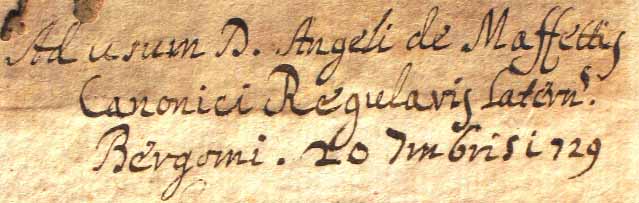 Ad usum D. Angeli de Maffettis
Canonici Regularis Laterns.
Bergomi. 20 7mbris 1729